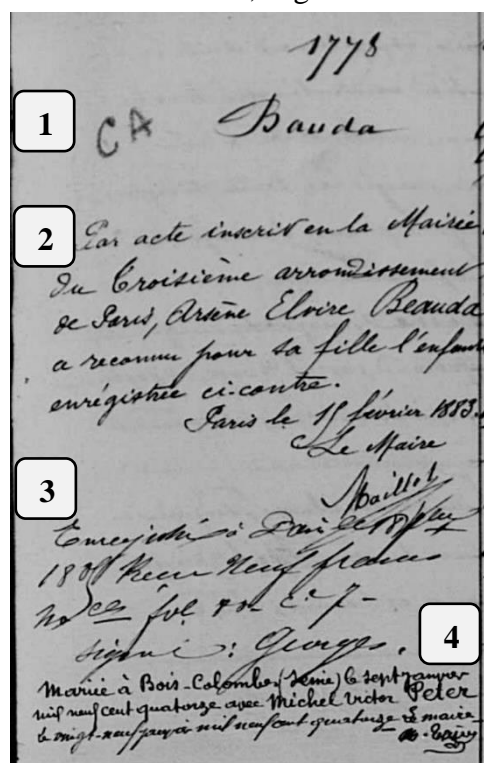 1778
1
CA
Bauda
2
Par acte inscrit en la Mairie
du Troisième arrondissement
de Paris, Arsène Elvire Beauda
a reconnu pour sa fille l'enfant
enrégistrée ci-contre.
Paris le 15 février 1883.
Le Maire
3
Maillet
Enregistré à Paris le
188 Recu Neuf francs
fol.
4
signé : Georges.
Mariée à Bois-Colombes (Seine) le sept janvier
mil neuf cent quatorze avec Michel Victor Peter
le vingt-neuf janvier mil neuf cent quatorze Le maire